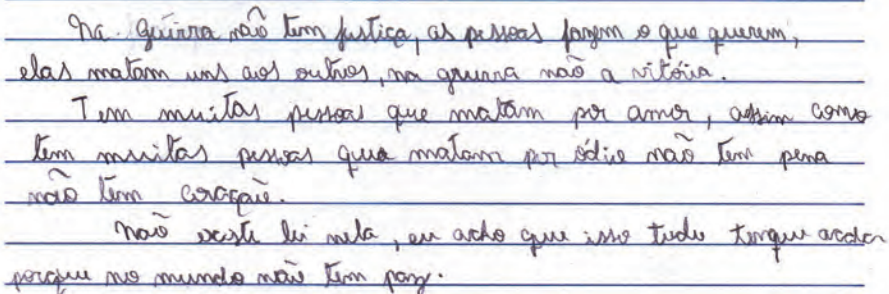 Na guerra não tem justiça, as pessoas fazem o que querem,
elas matam uns aos outros, na gruerra não a vitória.
Tem muitas pessoas que matam por amor, assim como
tem muitas pessoas que matam por ódio não tem pena
não tem coração.
Não existe lei nela, eu acho que isso tudo tenque acabar
porque no mundo não tem paz.